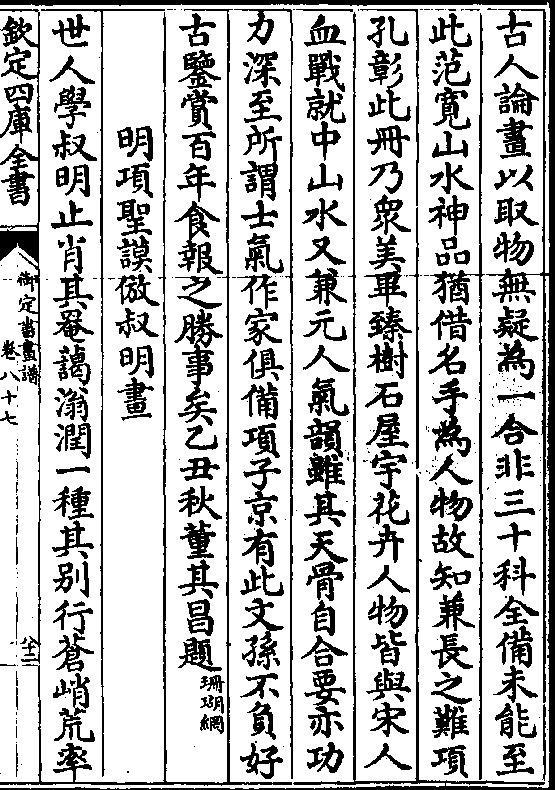 古人論畫以取物無疑為一合非三十科全備未能至
此范寬山水神品猶借名手為人物故知兼長之難項
孔彰此册乃衆美畢臻樹石屋宇花卉人物皆與宋人
血戰就中山水又兼元人氣韻雖其天骨自合要亦功
力深至所謂士氣作家俱備項子京有此文孫不負好
古鑒賞百年食報之勝事矣乙丑秋董其昌題珊瑚網
明項聖謨倣叔明畫
世人學叔明止肖其菴藹滃潤一種其别行蒼峭荒率
欽定四庫全書
御定書畫譜
卷八十七